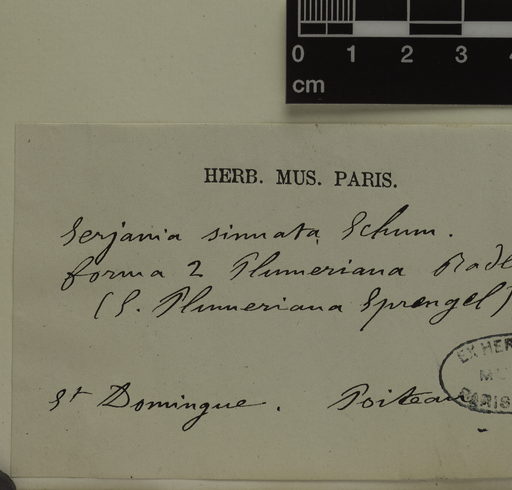 0 1 2 3 4
cm
HERB. MUS. PARIS.
Serjania sinuata Schum.
forma 2 Plumeriana Radl
(S. Plumeriana Sprengel)
EX HER
MU
PARIS
St Domingue. Poiteau